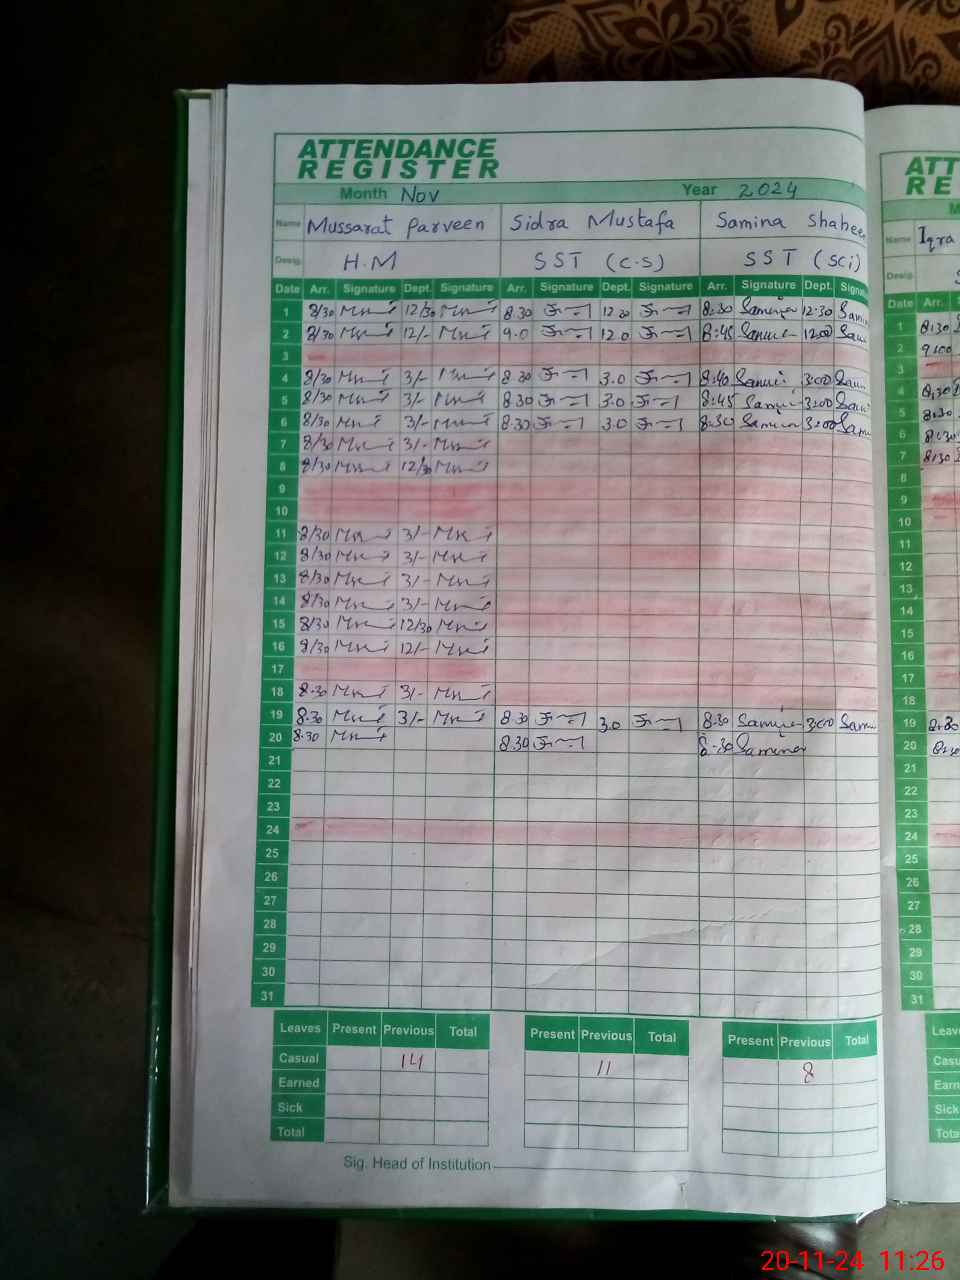 ATTENDANCE
REGISTER
Month Nov Year 2024
Name Mussarat Parveen Sidra Mustafa Samina Shaheen
Desig. H.M SST (C.S) SST (Sci)
Date Arr. Signature Dept. Signature Arr. Signature Dept. Signature Arr. Signature Dept. Signatu
1 8/30 12/30 8.30 12.30 8:30 Samina 12:30
2 8/30 12/- 9.0 12.0 8:45 12:00
3
4 8/30 3/- 8.30 3.0 8:40 3:00
5 8/30 3/- 8.30 3.0 8:45 3:00
6 8/30 3/- 8.30 3.0 8:30 3:00
7 8/30 3/-
8 8/30 12/30
9
10
11 8/30 3/-
12 8/30 3/-
13 8/30 3/-
14 8/30 3/-
15 8/30 12/30
16 8/30 12/-
17
18 8.30 3/-
19 8.30 3/- 8.30 3.0 8:30 3:00
20 8.30 8.30 8:30 Samina
21
22
23
24
25
26
27
28
29
30
31
Leaves Present Previous Total Present Previous Total Present Previous Total
Casual 14 11 8
Earned
Sick
Total
Sig. Head of Institution
ATT
RE
M
Name Iqra
Desig. S
Date Arr.
1 8:30
2 9:00
3
4 8:30
5 8:30
6 8:30
7 8:30
8
9
10
11
12
13
14
15
16
17
18
19 8:30
20 8:30
21
22
23
24
25
26
27
28
29
30
31
Leave
Casu
Earn
Sick
Tota
20-11-24 11:26